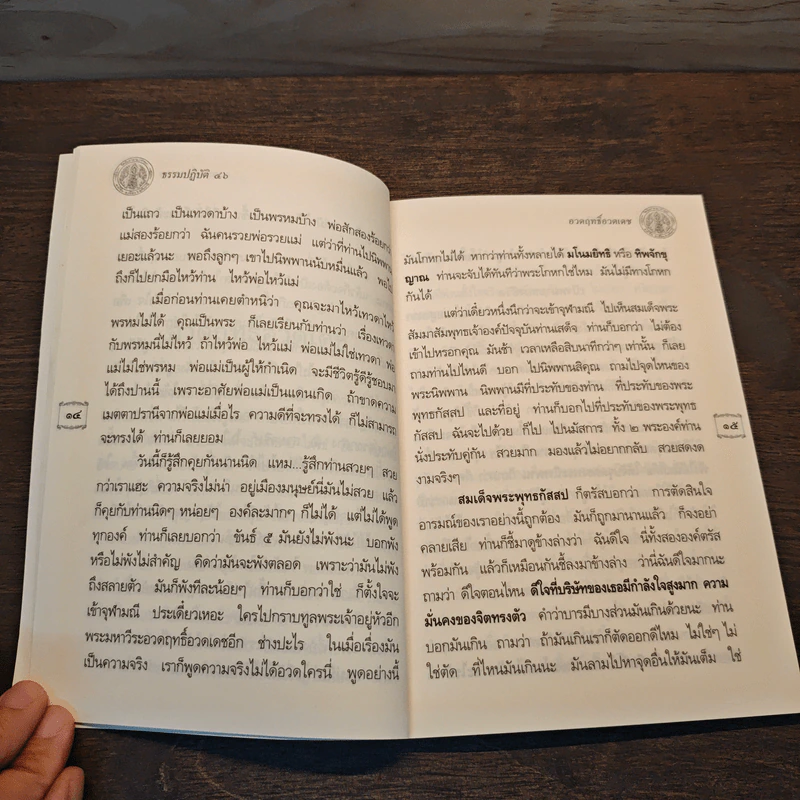 ธรรมปฏิบัติ ๔๖
เป็นแถว เป็นเทวดาบ้าง เป็นพรหมบ้าง พ่อสักสองร้อยกว่า
แม่สองร้อยกว่า ฉันคนรวยพ่อรวยแม่ แต่ว่าที่ท่านไปนิพพาน
เยอะแล้วนะ พอถึงลูกๆ เขาไปนิพพานนับหมื่นแล้ว พอไป
ถึงก็ไปยกมือไหว้ท่าน ไหว้พ่อไหว้แม่
เมื่อก่อนท่านเคยตำหนิว่า คุณจะมาไหว้เทวดาไหว้
พรหมไม่ได้ คุณเป็นพระ ก็เลยเรียนกับท่านว่า เรื่องเทวดา
กับพรหมนี่ไม่ไหว้ ถ้าไหว้พ่อ ไหว้แม่ พ่อแม่ไม่ใช่เทวดา พ่อ
แม่ไม่ใช่พรหม พ่อแม่เป็นผู้ให้กำเนิด จะมีชีวิตรู้ดีรู้ชอบมา
ได้ถึงปานนี้ เพราะอาศัยพ่อแม่เป็นแดนเกิด ถ้าขาดความ
เมตตาปรานีจากพ่อแม่เมื่อไร ความดีที่จะทรงได้ ก็ไม่สามารถ
จะทรงได้ ท่านก็เลยยอม
วันนี้ก็รู้สึกคุยกันนานนิด แหม...รู้สึกท่านสวยๆ สวย
กว่าเราแฮะ ความจริงไม่น่า อยู่เมืองมนุษย์นี่มันไม่สวย แล้ว
ก็คุยกับท่านนิดๆ หน่อยๆ องค์ละมากๆ ก็ไม่ได้ แต่ไม่ได้พูด
ทุกองค์ ท่านก็เลยบอกว่า ขันธ์ ๕ มันยังไม่พังนะ บอกพัง
หรือไม่พังไม่สำคัญ คิดว่ามันจะพังตลอด เพราะว่ามันไม่พัง
ถึงสลายตัว มันก็พังทีละน้อยๆ ท่านก็บอกว่าใช่ ก็ตั้งใจจะ
เข้าจุฬามณี ประเดี๋ยวเหอะ ใครไปกราบทูลพระเจ้าอยู่หัวอีก
พระมหาวีระอวดฤทธิ์อวดเดชอีก ช่างปะไร ในเมื่อเรื่องมัน
เป็นความจริง เราก็พูดความจริงไม่ได้อวดใครนี่ พูดอย่างนี้
๑๔
อวดฤทธิ์อวดเดช
มันโกหกไม่ได้ หากว่าท่านทั้งหลายได้ มโนมยิทธิ หรือ ทิพจักขุ
ญาณ ท่านจะจับได้ทันทีว่าพระโกหกใช่ไหม มันไม่มีทางโกหก
กันได้
แต่ว่าเดี๋ยวหนึ่งนึกว่าจะเข้าจุฬามณี ไปเห็นสมเด็จพระ
สัมมาสัมพุทธเจ้าองค์ปัจจุบันท่านเสด็จ ท่านก็บอกว่า ไม่ต้อง
เข้าไปหรอกคุณ มันช้า เวลาเหลือสิบนาทีกว่าๆ เท่านั้น ก็เลย
ถามท่านไปไหนดี บอก ไปนิพพานสิคุณ ถามไปจุดไหนของ
พระนิพพาน นิพพานมีที่ประทับของท่าน ที่ประทับของพระ
พุทธกัสสป และที่อยู่ ท่านก็บอกไปที่ประทับของพระพุทธ
กัสสป ฉันจะไปด้วย ก็ไป ไปนมัสการ ทั้ง ๒ พระองค์ท่าน
นั่งประทับคู่กัน สวยมาก มองแล้วไม่อยากกลับ สวยสดงด
งามจริงๆ
สมเด็จพระพุทธกัสสป ก็ตรัสบอกว่า การตัดสินใจ
อารมณ์ของเราอย่างนี้ถูกต้อง มันก็ถูกมานานแล้ว ก็จงอย่า
คลายเสีย ท่านก็ชี้มาดูข้างล่างว่า ฉันดีใจ นี่ทั้งสององค์ตรัส
พร้อมกัน แล้วก็เหมือนกันชี้ลงมาข้างล่าง ว่านี่ฉันดีใจมากนะ
ถามว่า ดีใจตอนไหน ดีใจที่บริษัทของเธอมีกำลังใจสูงมาก ความ
มั่นคงของจิตทรงตัว คำว่าบารมีบางส่วนมันเกินด้วยนะ ท่าน
บอกมันเกิน ถามว่า ถ้ามันเกินเราก็ตัดออกดีไหม ไม่ใช่ๆ ไม่
ใช่ตัด ที่ไหนมันเกินนะ มันลามไปหาจุดอื่นให้มันเต็ม ใช่
๑๕